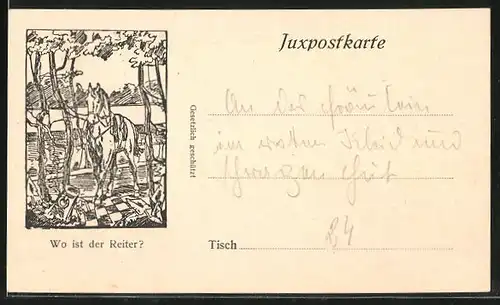 Juxpostkarte
An das Fräulein
im roten Kleid und
schwarzen Hut
Gesetzlich geschützt
Wo ist der Reiter?
Tisch 24